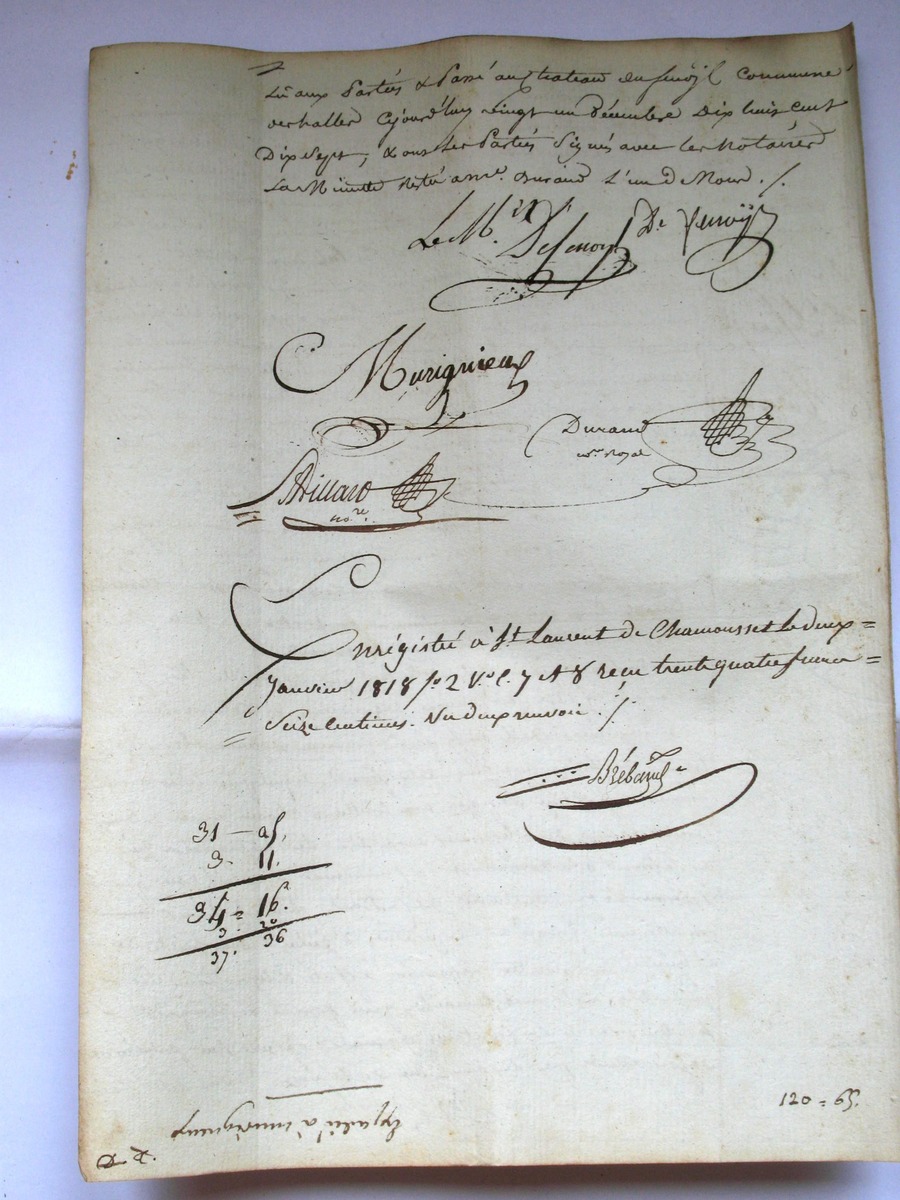 Lû aux Partiés & Passé au Chateau du fenoÿl Commune
Cejourd'huy vingt un Décembre Dix huit Cent
Dix Sept, & ont les Partiés Signés avec les Notaires
La Minutte Resté a me. Durand L'un d Nous ./.
Le M.is De fenoÿl De fenoÿl
Murigneux
Durand
nore. Royal
Billard
nore.
Enrégistré à St. Laurent de Chamousset le deux =
Janvier 1818 fo. 2 Vo. C. 7 et 8 reçu trente quatre francs =
= Seize Centimes. Vu deux renvois ./.
31 — 05.
3. 11.
34 = 16.
3. 20
37. 36
120 = 65.
Expedié à murigneux